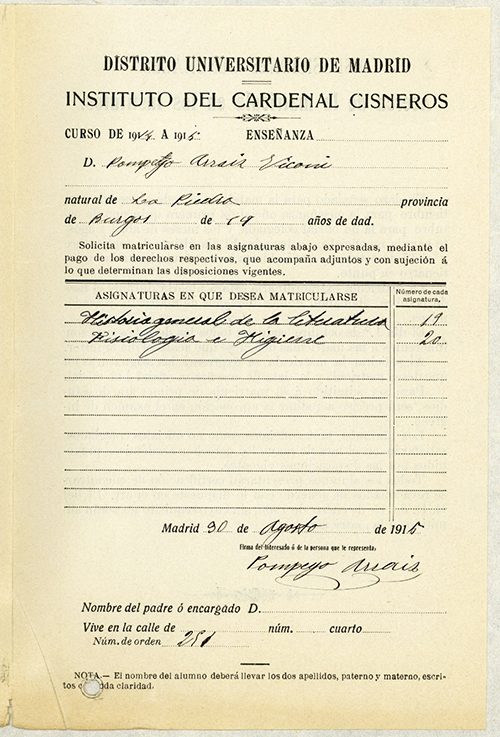 DISTRITO UNIVERSITARIO DE MADRID
INSTITUTO DEL CARDENAL CISNEROS
CURSO DE 1914 A 1915 ENSEÑANZA
D. Pompeyo Arraiz
natural de La Piedra provincia
de Burgos de 19 años de dad.
Solicita matricularse en las asignaturas abajo expresadas, mediante el
pago de los derechos respectivos, que acompaña adjuntos y con sujeción á
lo que determinan las disposiciones vigentes.
ASIGNATURAS EN QUE DESEA MATRICULARSE Número de cada asignatura.
Historia general de la literatura 19
Fisiologia e Higiene 20
Madrid 30 de Agosto de 1915
Firma del interesado ó de la persona que le representa,
Pompeyo Arraiz
Nombre del padre ó encargado D.
Vive en la calle de núm. cuarto
Núm. de orden 281
NOTA.— El nombre del alumno deberá llevar los dos apellidos, paterno y materno, escri-
tos con toda claridad.